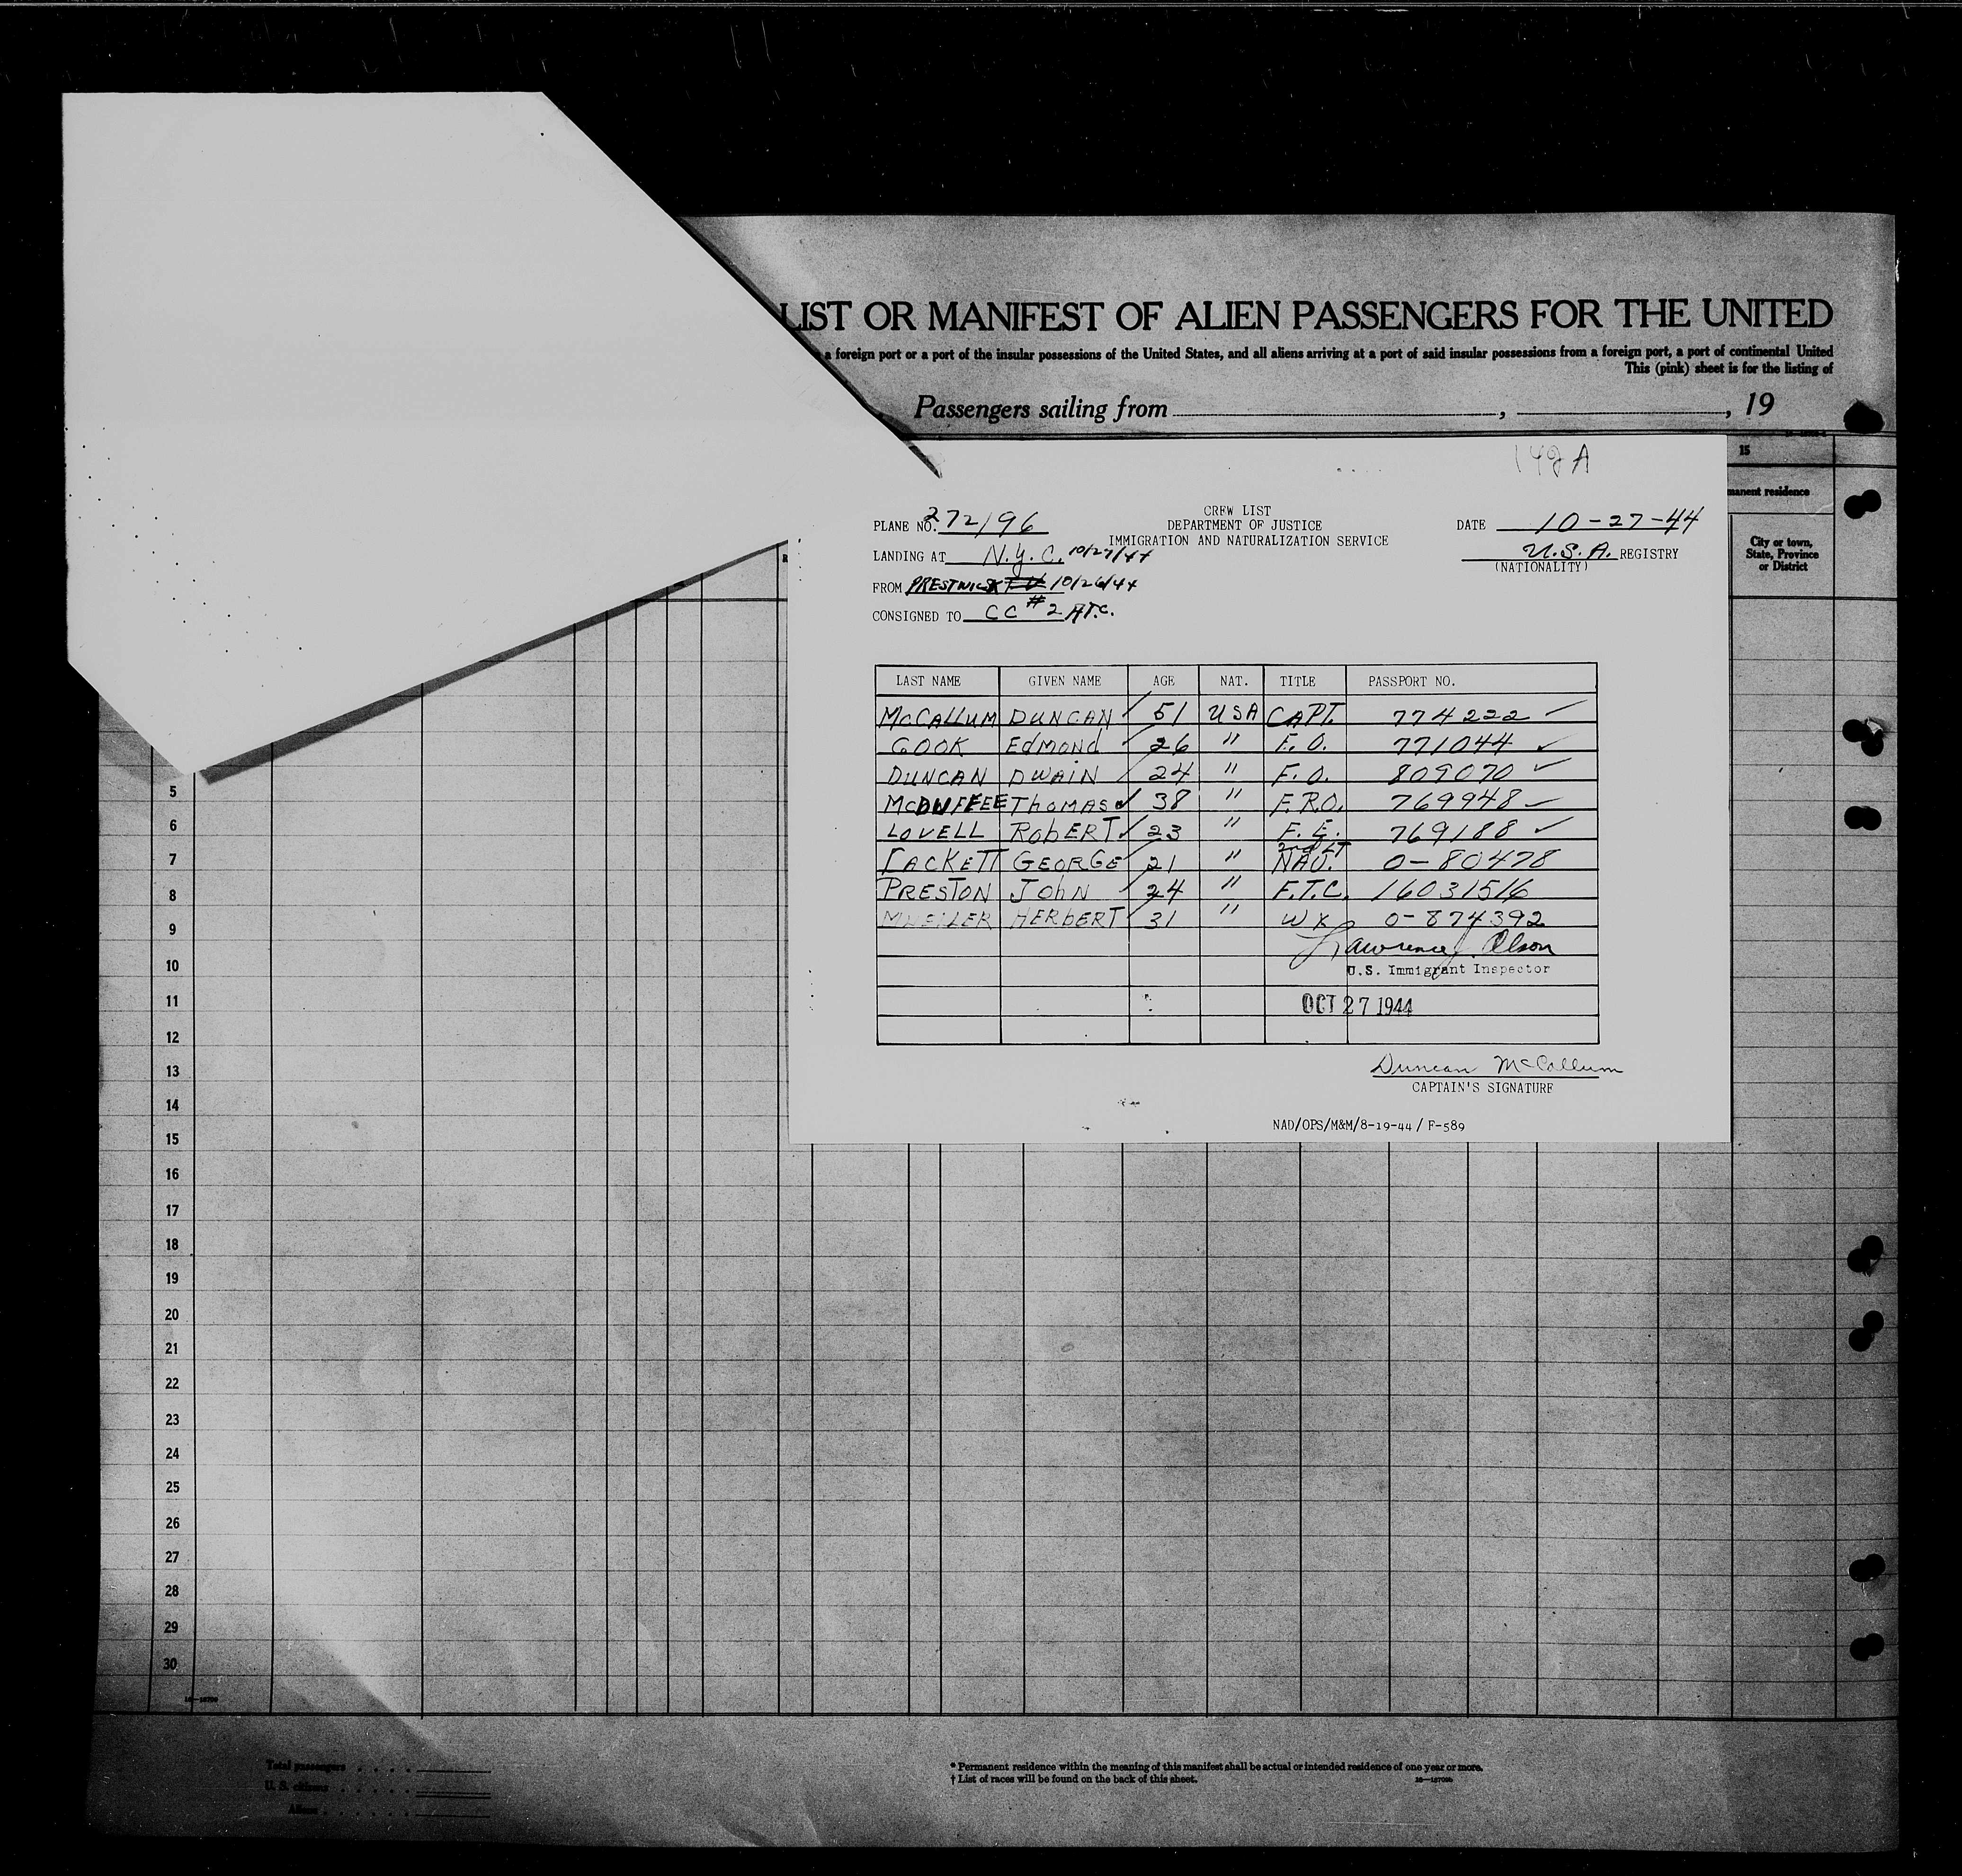 LIST OR MANIFEST OF ALIEN PASSENGERS FOR THE UNITED
a foreign port or a port of the insular possessions of the United States, and all aliens arriving at a port of said insular possessions from a foreign port, a port of continental United
This (pink) sheet is for the listing of
Passengers sailing from , , 19
15
manent residence
City or town,
State, Province
or District
CREW LIST
DEPARTMENT OF JUSTICE
IMMIGRATION AND NATURALIZATION SERVICE
PLANE NO. 272196
DATE 10-27-44
LANDING AT N.Y.C. 10/27/44
U.S.A. REGISTRY
(NATIONALITY)
FROM PRESTWICK 10/26/44
CONSIGNED TO CC #2 ATC.
LAST NAME GIVEN NAME AGE NAT. TITLE PASSPORT NO.
McCALLUM DUNCAN 51 USA CAPT. 774222
COOK EdMONd 26 " F.O. 771044
DUNCAN DWAIN 24 " F.O. 809070
McDUFFEE ThOMAS 38 " F.R.O. 769948
LOVELL RObERT 23 " F.E. 769188
LACKETT GEORGE 21 " 2nd LT NAV. 0-80478
PRESTON JOhN 24 " F.T.C. 16031516
HERbERT 31 " WX 0-874392
Lawrence J. Olson
U.S. Immigrant Inspector
OCT 27 1944
Duncan McCallum
CAPTAIN'S SIGNATURE
NAD/OPS/M&M/8-19-44 / F-589
5
6
7
8
9
10
11
12
13
14
15
16
17
18
19
20
21
22
23
24
25
26
27
28
29
30
Total passengers
U. S. citizens
Aliens
* Permanent residence within the meaning of this manifest shall be actual or intended residence of one year or more.
† List of races will be found on the back of this sheet.